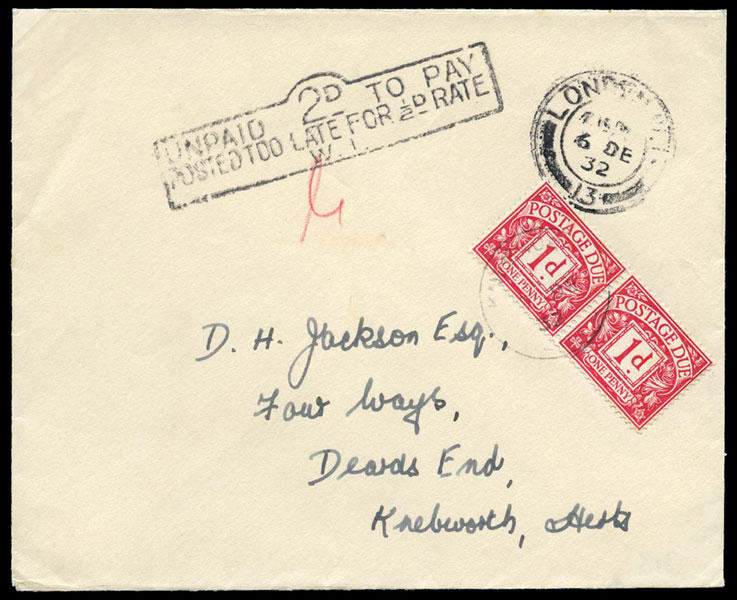 UNPAID 2D TO PAY
POSTED TOO LATE FOR ½D RATE
W.1.
LONDON
6 DE
32
13
POSTAGE DUE
1d
ONE PENNY
POSTAGE DUE
1d
ONE PENNY
D. H. Jackson Esq.,
Four Ways,
Deards End,
Knebworth, Herts